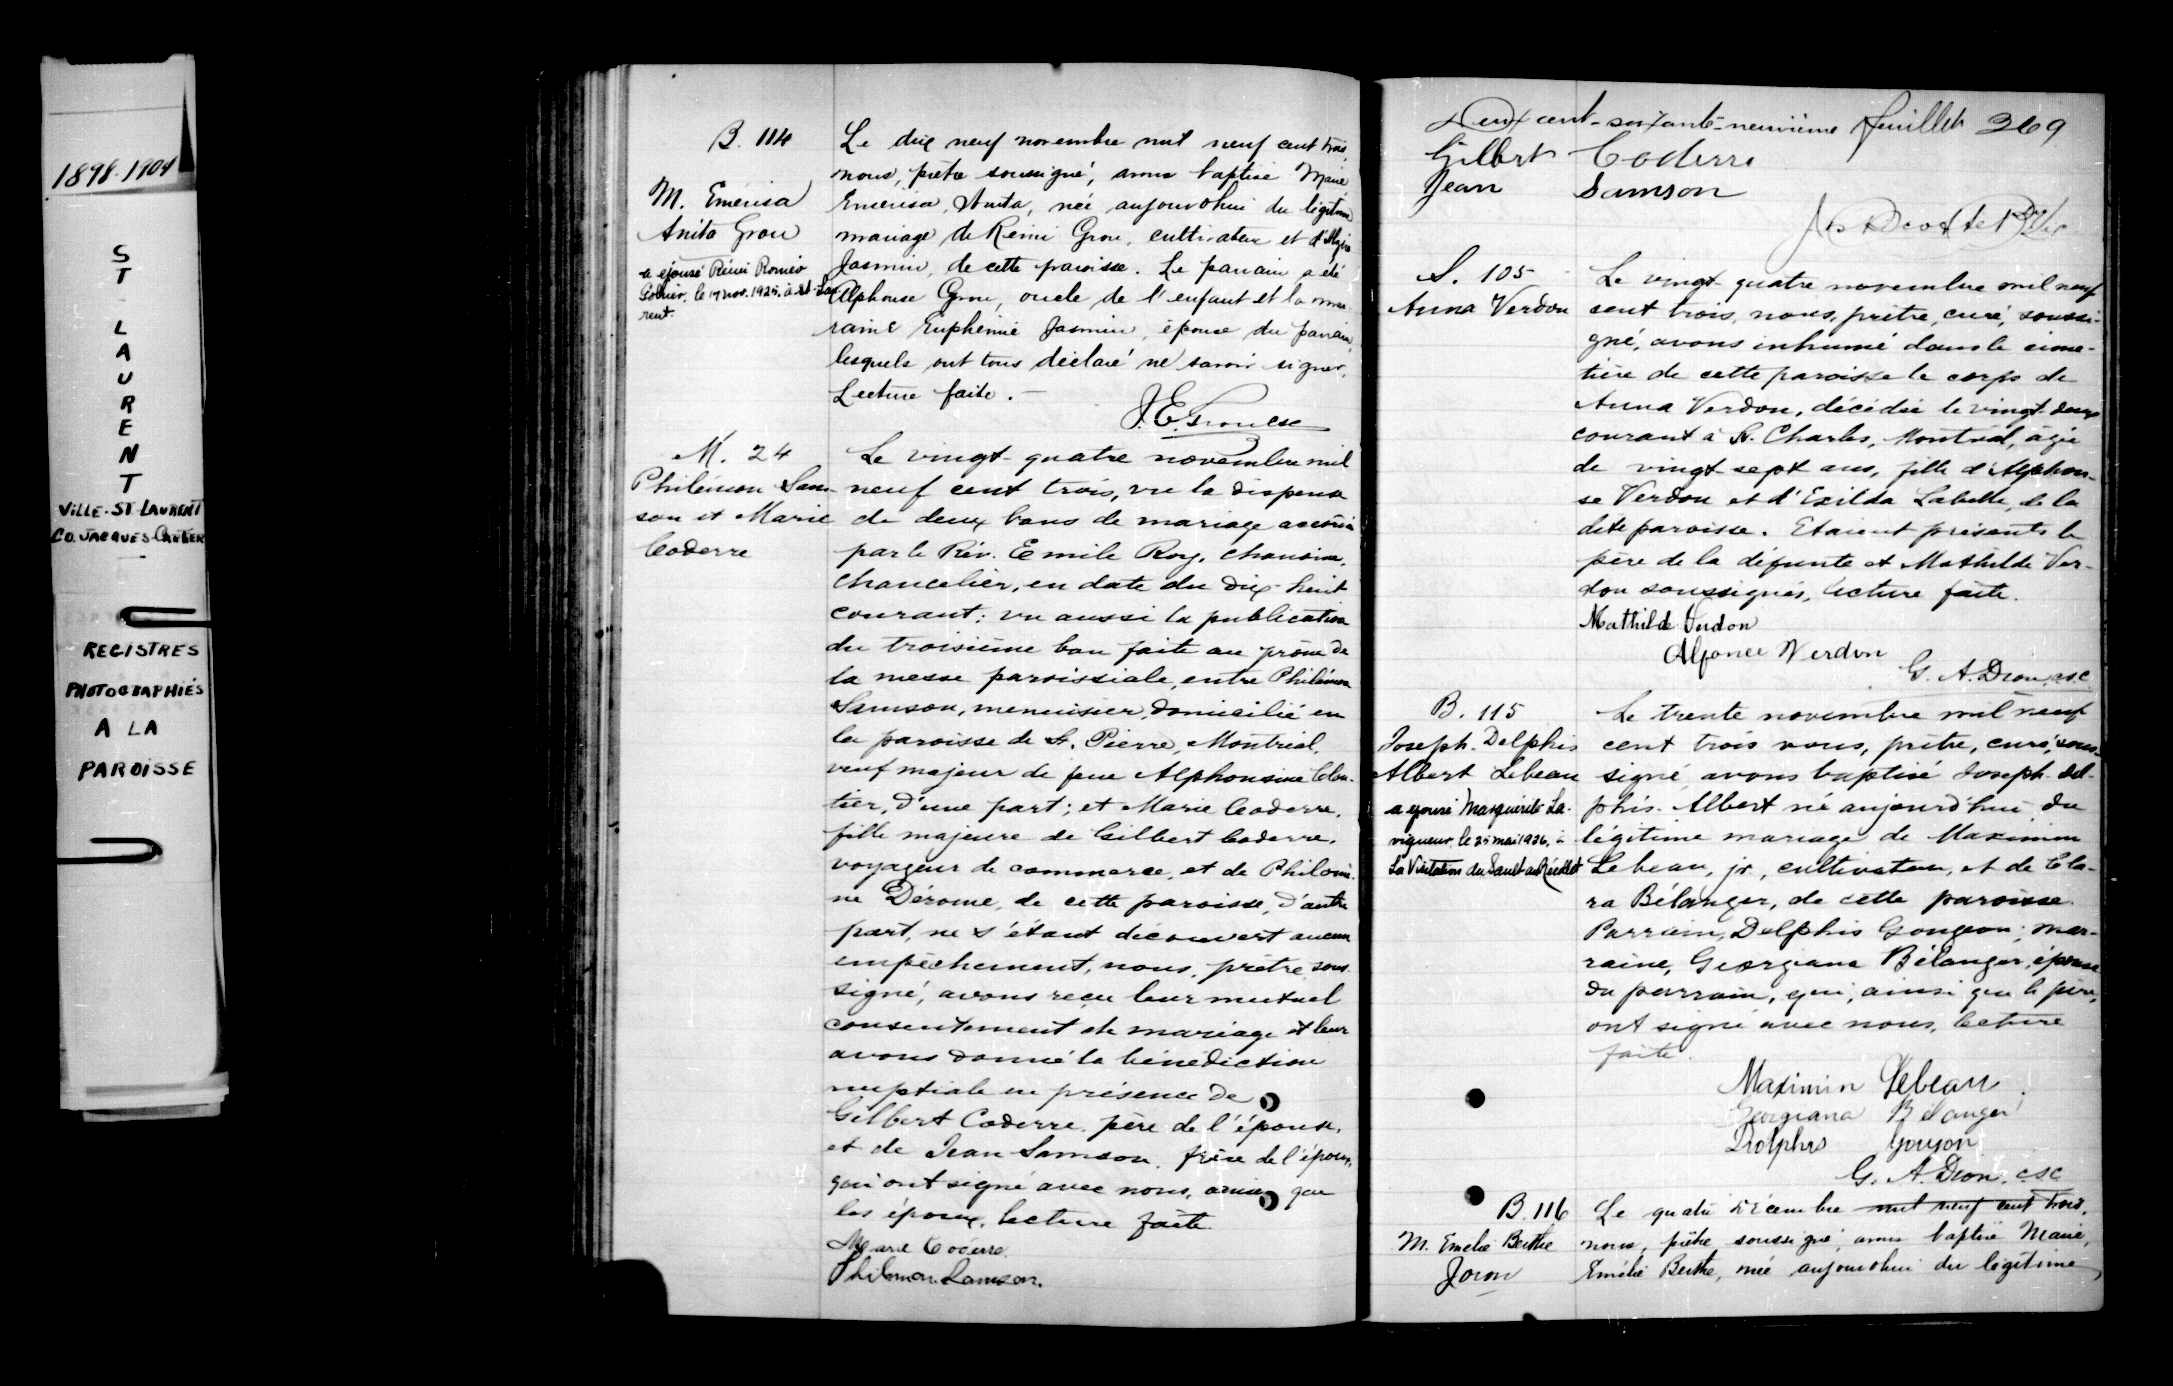 1898-1904
ST LAURENT
VILLE-ST-LAURENT
CO. JACQUES-CARTIER
REGISTRES
PHOTOGRAPHIÉS
A LA
PAROISSE
B. 114
M. Emérisa
Anita Grou
a épousé Rémi Roméo
le 17 nov. 1925, à St-Lau
rent.
Le dix neuf novembre mil neuf cent trois,
nous, prêtre soussigné, avons baptisé Marie
Emerisa, Anita, née aujourdhui du légitime
mariage de Rémi Grou, cultivateur et d'
Jasmin, de cette paroisse. Le parrain a été
Alphonse Grou, oncle de l'enfant et la mar
raine Euphémie Jasmin, épouse du parrain,
lesquels ont tous déclaré ne savoir signer,
Lecture faite. -
M. 24
Philémon Sam-
son et Marie
Coderre
Le vingt-quatre novembre mil
neuf cent trois, vu la dispense
de deux bans de mariage accordée
par le Rév. Emile Roy, chanoine,
chancelier, en date du dix-huit
courant; vu aussi la publication
du troisième ban faite au prône de
la messe paroissiale, entre Philémon
Samson, menuisier, domicilié en
la paroisse de St. Pierre, Montréal,
veuf majeur de feue Alphonsine Clou-
tier, d'une part; et Marie Coderre,
fille majeure de Gilbert Coderre,
voyageur de commerce, et de Philomè-
ne Dérome, de cette paroisse, d'autre
part, ne s'étant découvert aucun
empêchement, nous, prêtre sous
signé, avons reçu leur mutuel
consentement de mariage et leur
avons donné la bénédiction
nuptiale en présence de
Gilbert Coderre, père de l'épouse,
et de Jean Samson, frère de l'époux,
qui ont signé avec nous, ainsi que
les époux, lecture faite.
Marie Coderre
Philémon Samson.
Deux cent-soixante-neuvième feuillet 269
Gilbert Coderre
Jean Samson
S. 105
Anna Verdon
Le vingt-quatre novembre mil neuf
cent trois, nous, prêtre, curé, soussi-
gné, avons inhumé dans le cime-
tière de cette paroisse le corps de
Anna Verdon, décédée le vingt-deux
courant à St. Charles, Montréal, âgée
de vingt-sept ans, fille d'Alphon-
se Verdon et d'Exilda Labelle, de la
dite paroisse. Etaient présents le
père de la défunte et Mathilde Ver-
don soussignés, lecture faite.
Mathilde Verdon
Alfonce Verdon
G. A. Dion, c.s.c.
B. 115
Joseph-Delphis
Albert Lebeau
a épousé Marguerite La-
vigueur, le 25 mai 1926, à
La Visitation du Sault au Récollet
Le trente novembre mil neuf
cent trois nous, prêtre, curé, sous-
signé, avons baptisé Joseph-Del-
phis-Albert né aujourd'hui du
légitime mariage de Maximin
Lebeau, jr, cultivateur, et de Cla-
ra Bélanger, de cette paroisse.
Parrain, Delphis Gougeon; mar-
raine, Georgiana Bélanger, épouse
du parrain, qui, ainsi que le père,
ont signé avec nous, lecture
faite.
Maximin Lebeau
Georgiana Bélanger
Delphis Goujon
G. A. Dion, c.s.c.
B. 116
M. Emélie Berthe
Joron
Le quatre décembre mil neuf cent trois,
nous, prêtre soussigné, avons baptisé Marie,
Emélie Berthe, née aujourdhui du légitime